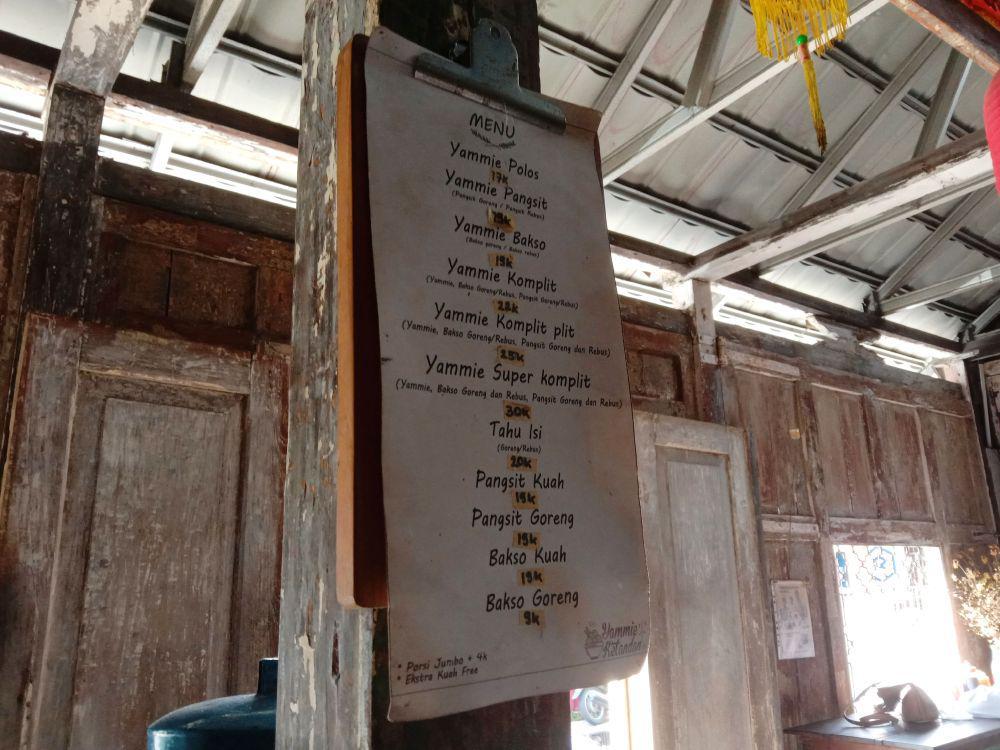 MENU
Yammie Polos
17k
Yammie Pangsit
(Pangsit Goreng / Pangsit Rebus)
Yammie Bakso
(Bakso goreng / Bakso rebus)
19k
Yammie Komplit
(Yammie, Bakso Goreng/Rebus, Pangsit Goreng/Rebus)
Yammie Komplit plit
(Yammie, Bakso Goreng/Rebus, Pangsit Goreng dan Rebus)
25k
Yammie Super komplit
(Yammie, Bakso Goreng dan Rebus, Pangsit Goreng dan Rebus)
30k
Tahu Isi
(Goreng/Rebus)
20k
Pangsit Kuah
15k
Pangsit Goreng
15k
Bakso Kuah
19k
Bakso Goreng
9k
Yammie
Ketandan
• Porsi Jumbo + 4k
• Ekstra Kuah Free